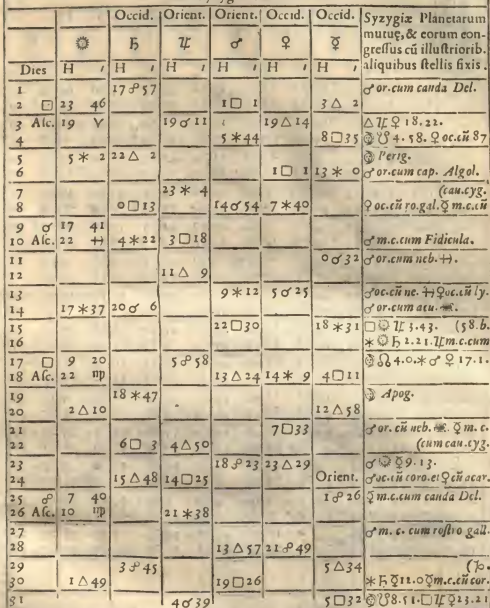 Occid. Orient. Orient. Occid. Occid. Syzygiæ Planetarum
☼ ♄ ♃ ♂ ♀ ☿ mutuę, & eorum con-
greſſus cũ illuſtriorib.
Dies H ′ H ′ H ′ H ′ H ′ H ′ aliquibus ſtellis fixis.
1 17 ☍ 57 ♂ or. cum cauda Del.
2 □ 23 46 1 □ 1 3 △ 2
3 Aſc. 19 ♈ 19 ☌ 11 19 △ 14 △ ♃ ♀ 18. 22.
4 5 ✶ 44 8 □ 35 ☋ 4. 58. ♀ oc. cũ 87
5 5 ✶ 2 22 △ 2 Perig.
6 1 □ 1 13 ✶ 0 ♂ or. cum cap. Algol.
7 23 ✶ 4 (cau. cyg.
8 0 □ 13 14 ☌ 54 7 ✶ 40 ♀ oc. cũ ro. gal. ☿ m. c. cũ
9 ☌ 17 41
10 Aſc. 22 ♓ 4 ✶ 22 3 □ 18 ♂ m. c. cum Fidicula.
11 0 ☌ 32 ♂ or. cum neb. ♓.
12 11 △ 9
13 9 ✶ 12 5 ☌ 25 ♂ oc. cũ ne. ♓ ♀ oc. cũ ly.
14 17 ✶ 37 20 ☌ 6 ♂ or. cum acu.
15 22 □ 30 18 ✶ 31 □ ☼ ♃ 3. 43. (58. b.
16 ✶ ☼ ♄ 2. 21. ♃ m. c. cum
17 □ 9 20 5 ☍ 58 ☊ 4. 0. ✶ ♂ ♀ 17. 1.
18 Aſc. 22 ♍ 13 △ 24 14 ✶ 9 4 □ 11
19 18 ✶ 47 Apog.
20 2 △ 10 12 △ 58
21 7 □ 33 ♂ or. cũ neb. ☿ m. c.
22 6 □ 3 4 △ 50 (cum cau. cyg.
23 18 ☍ 23 23 △ 29 ☌ ☼ ☿ 9. 13.
24 15 △ 48 14 □ 25 Orient. ♂ oc. cũ coro. et ♀ cũ acar.
25 ☍ 7 40 1 ☍ 26 ☿ m. c. cum cauda Del.
26 Aſc. 10 ♍ 21 ✶ 38
27 ♂ m. c. cum roſtro gall.
28 13 △ 57 21 ☍ 49
29 3 ☍ 45 5 △ 34 (♑.
30 1 △ 49 19 □ 26 ✶ ♄ ☿ 12. 0 ☿ m. c. cũ cor.
31 4 ☌ 39 5 □ 32 ☋ 8. 51. □ ♃ ☿ 23. 21